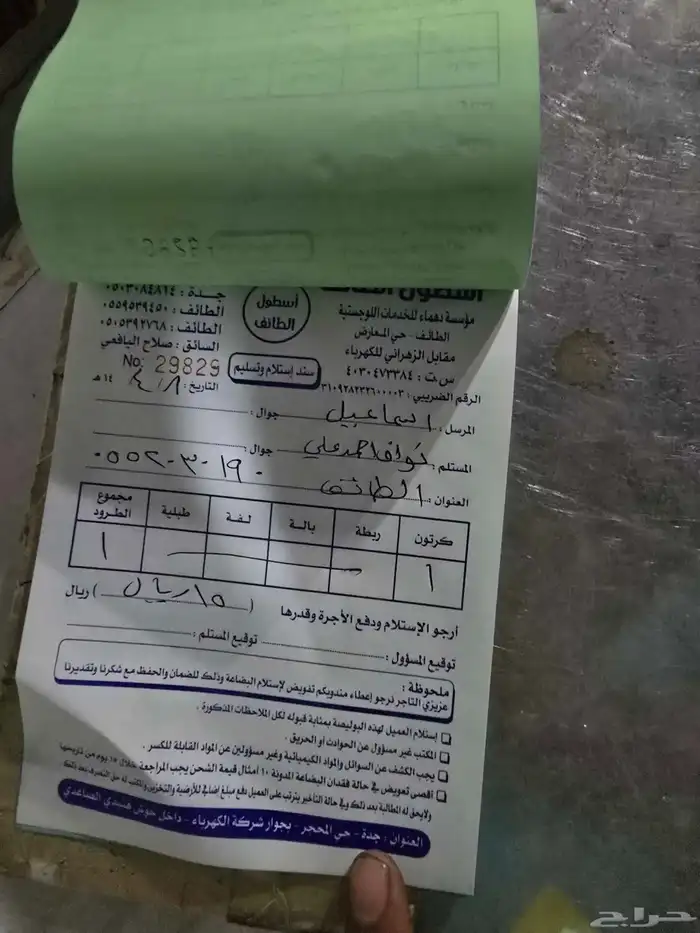 أسطول الطائف
مؤسسة دهماء للخدمات اللوجستية
الطائف - حي المعارض
مقابل الزهراني للكهرباء
س ت : ٤٠٣٠٤٧٣٣٨٤
الرقم الضريبي : ٣١٠٩٢٨٢٣٢٦٠٠٠٠٣
أسطول
الطائف
سند إستلام وتسليم
جدة : ٠٥٠٣٠٨٤٨١٤
الطائف : ٠٥٥٩٥٣٩٤٥٠
الطائف : ٠٥٠٥٣٩٢٧٦٨
السائق : صلاح اليافعي
No: 29829
التاريخ : ٤/٨ / ١٤هـ
المرسل : اسماعيل جوال :
المستلم : نواف احمد علي جوال :
العنوان : الطائف ٠٥٥٢٠٣٠١٩٠
كرتون ربطة بالة لفة طبلية مجموع الطرود
١ ١
أرجو الإستلام ودفع الأجرة وقدرها ( ١٥ ريال ) ريال
توقيع المسؤول : توقيع المستلم :
ملحوظة :
عزيزي التاجر نرجو إعطاء مندوبكم تفويض لإستلام البضاعة وذلك للضمان والحفظ مع شكرنا وتقديرنا
إستلام العميل لهذه البوليصة بمثابة قبوله لكل الملاحظات المذكورة .
المكتب غير مسؤول عن الحوادث أو الحريق .
يجب الكشف عن السوائل والمواد الكيميائية وغير مسؤولين عن المواد القابلة للكسر .
أقصى تعويض في حالة فقدان البضاعة المدونة ١٠ أمثال قيمة الشحن يجب المراجعة خلال ١٥ يوم من تاريخها
ولايحق له المطالبة بعد ذلك وفي حالة التأخير يترتب على العميل دفع مبلغ إضافي للأرضية والتخزين وللمكتب له حق التصرف بعد ذلك
العنوان : جدة - حي المحجر - بجوار شركة الكهرباء - داخل حوش هنيدي الصاعدي
حراج